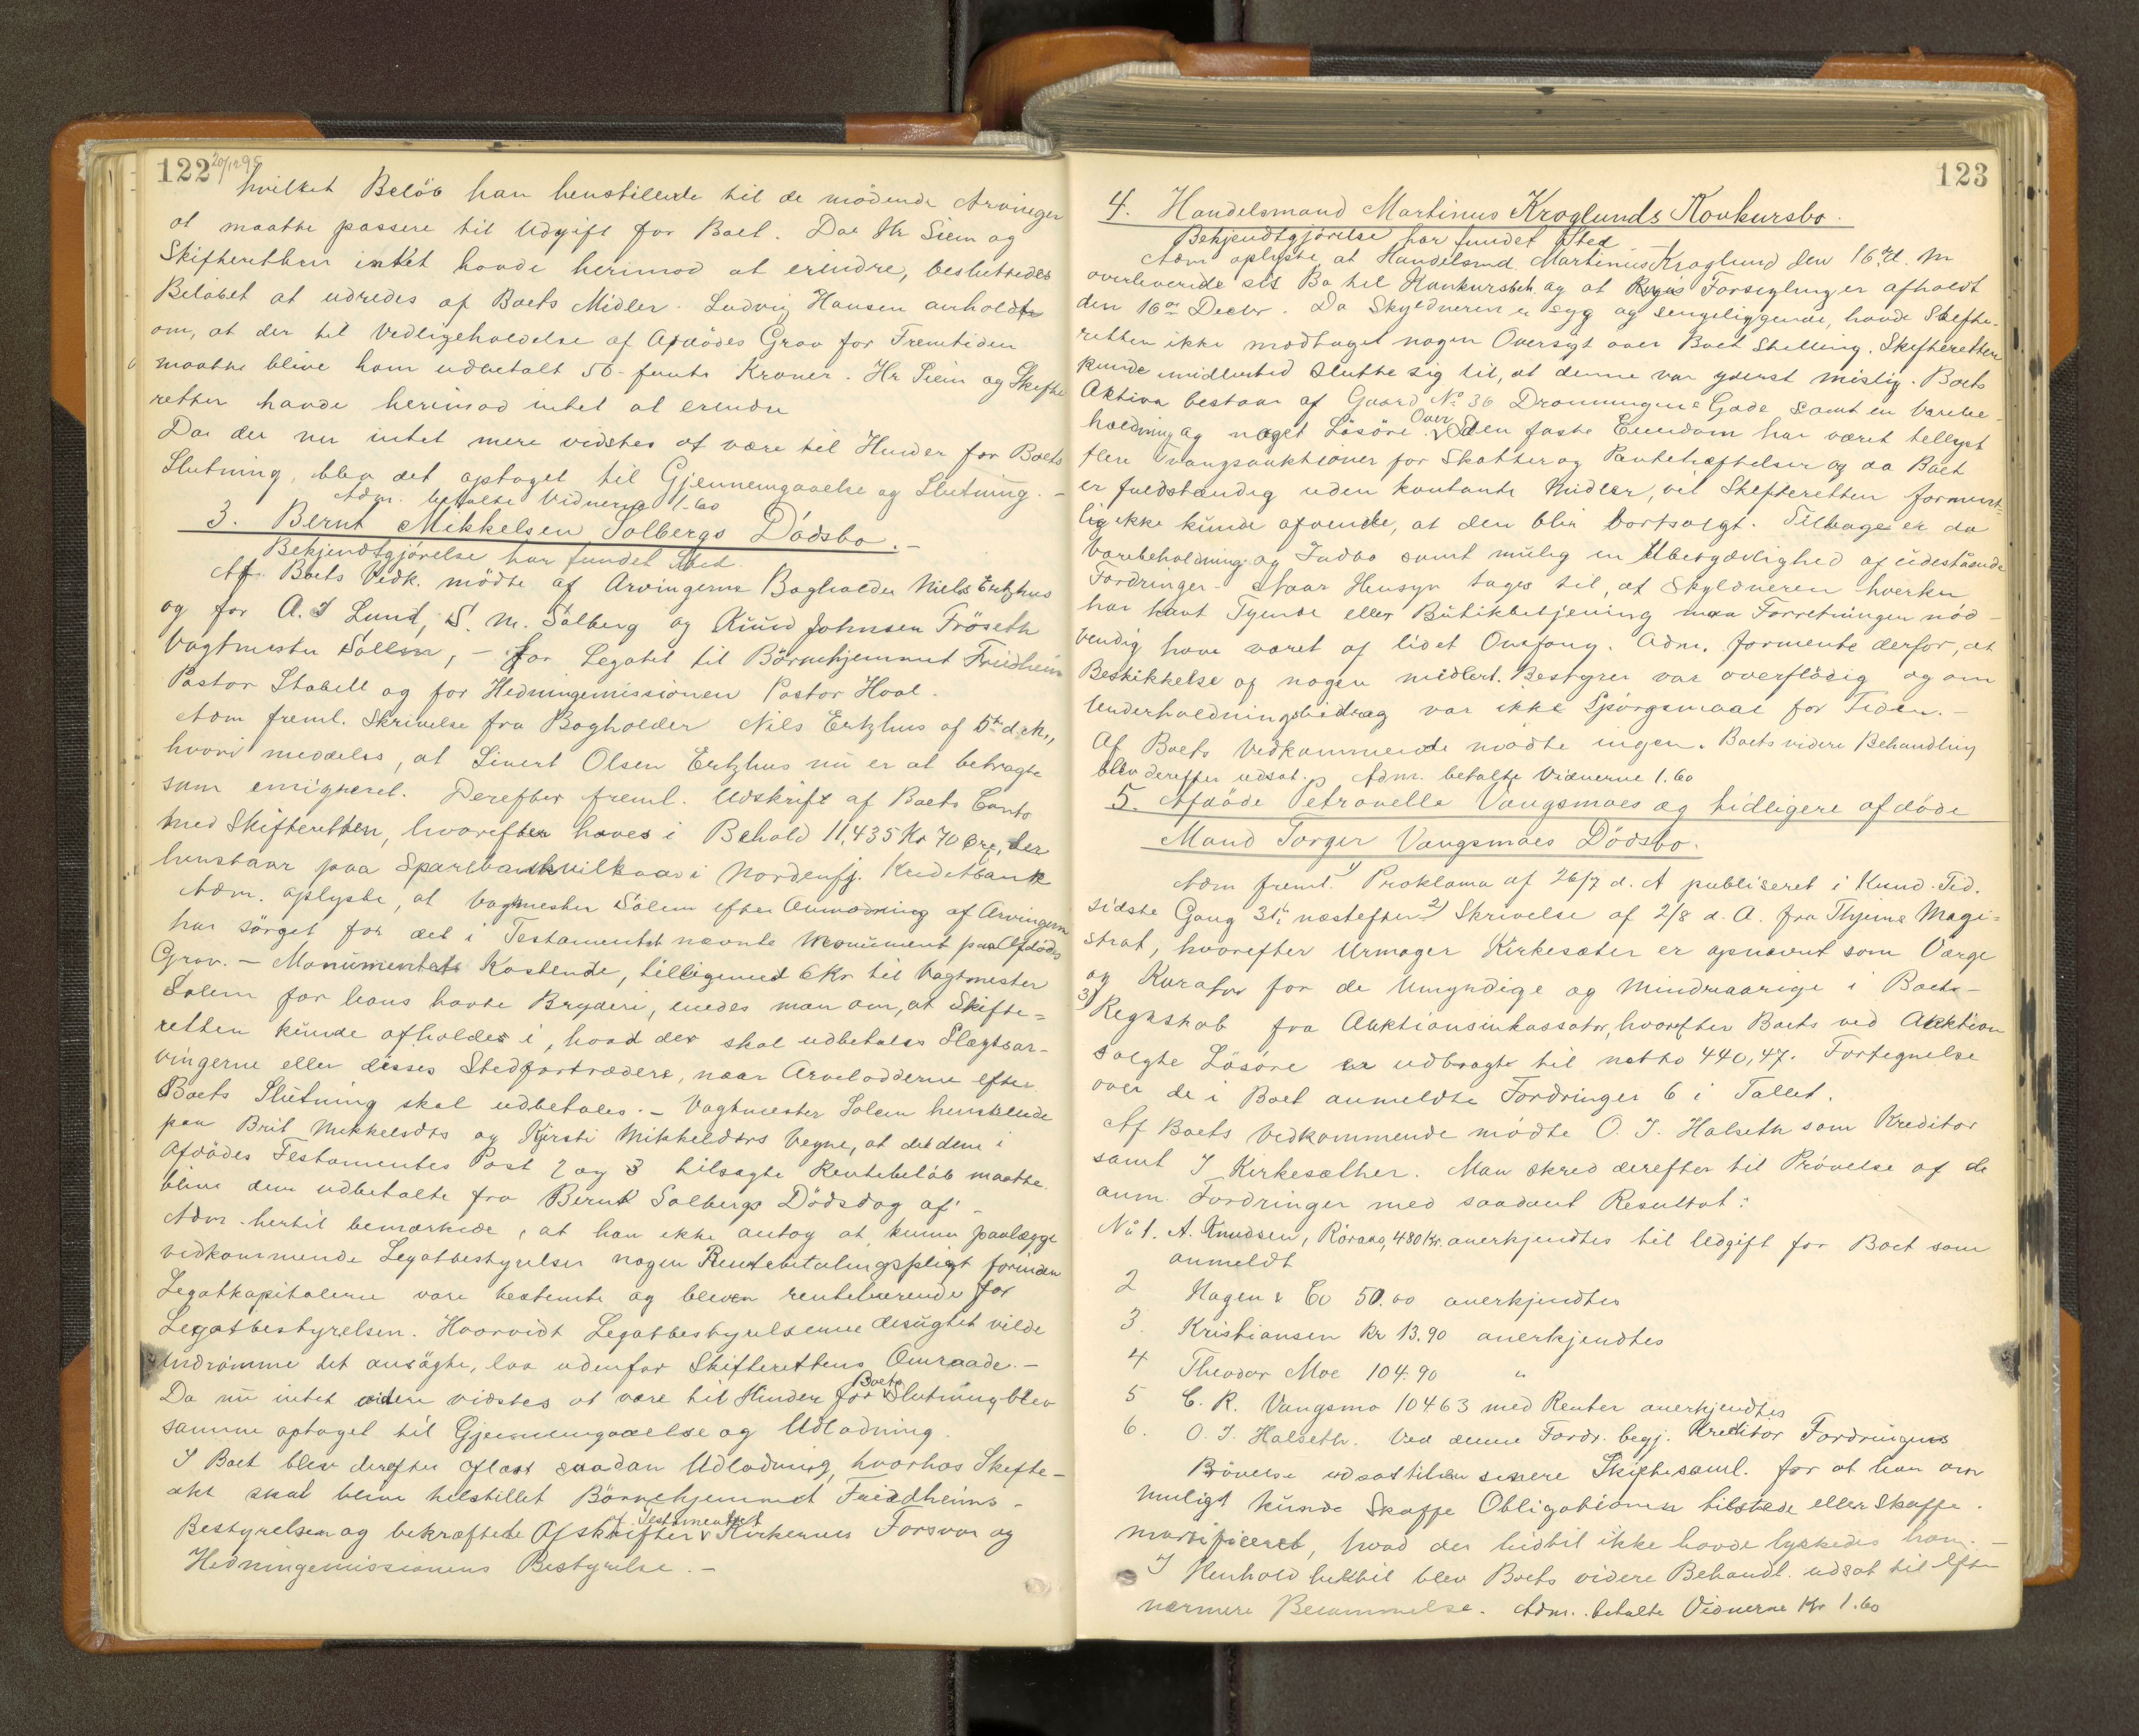 122 20/12 95
hvilket Beløb han henstillede til de mødende Arvinger
at maatte passere til Udgift for Boet. Da Hr Siem og
Skifteretten intet havde herimod at erindre, besluttedes
Beløbet at udredes af Boets Midler. Ludvig Hansen anholdt
om, at der til Vedligeholdelse af Afdødes Grav for Fremtiden
maatte blive ham udbetalt 50 - femti Kroner. Hr Siem og Skifte
retten havde herimod intet at erindre
Da der nu intet mere vidstes at være til Hinder for Boets
Slutning, blev det optaget til Gjennemgaaelse og Slutning. -
Adm. betalte Vidnerne 1.60
3. Bernt Mikkelsen Solbergs Dødsbo. -
Bekjendtgjørelse har fundet Sted.
Af Boets Vedk. mødte af Arvingerne Bogholder Niels Ertzhus
og for A. J Lund, S. M. Solberg og Knud Johnsen Frøseth
Vagtmester Solem, - for Legatet til Børnehjemmet Friedheim
Pastor Stabell og for Hedningemissionen Pastor Hval.
Adm freml. Skrivelse fra Bogholder Nils Ertzhus af 5te d. M.,
hvori meddeles, at Sivert Olsen Ertzhus nu er at betragte
som emigreret. Derefter freml. Udskrift af Boets Conto
med Skifteretten, hvorefter haves i Behold 11,435 Kr 70 Øre, der
henstaar paa Sparebankvilkaar i Nordenfj. Kreditbank
Adm. oplyste, at Vagtmester Solem efter Anmodning af Arvingerne
har sørget for det i Testamentet nævnte Monument paa Afdødes
Grav. - Monumentets Kostende, tilligemed 6 Kr til Vagtmester
Solem for hans havte Bryderi, enedes man om, at Skifte=
retten kunde afholdes i, hvad der skal udbetales Slægtsar-
vingerne eller disses Stedfortrædere, naar Arvelodderne efter
Boets Slutning skal udbetales. - Vagtmester Solem henstillede
paa Brit Mikkelsdtrs og Kjersti Mikkelsdtrs Vegne, at det dem i
Afdødes Testamentes Post 2 og 3 tilsagte Rentebeløb maatte
blive dem udbetalte fra Bernt Solbergs Dødsdag af -
Adm. hertil bemærkede, at han ikke antog at kunne paalægge
vedkommende Legatbestyrelser nogen Rentebetalingspligt forinden
Legatkapitalerne vare bestemte og bleven rentebærende for
Legatbestyrelsen. Hvorvidt Legatbestyrelserne desuagtet vilde
indrømme det ansøgte, laa udenfor Skifterettens Omraade. -
Da nu intet videre vidstes at være til Hinder for Boets Slutning blev
samme optaget til Gjennemgaaelse og Udlodning.
I Boet blev derefter oflæst saadan Udlodning, hvorhos Skifte-
akt skal blive tilstillet Børnehjemmet Friedheims -
Bestyrelsen og bekræftede Afskrifter af Testamentet Kirkernes Forsvar og
Hedningemissionens Bestyrelse. -
123
4. Handelsmand Martinus Kroglunds Konkursbo.
Bekjendtgjørelse har fundet Sted
Adm oplyste at Handelsmd. Martinus Kroglund den 16de d. M
overleverede sit Bo til Konkursbeh. og at Forsegling er afholdt
den 16de Decbr. Da Skyldneren er syg og sengeliggende, havde Skifte-
retten ikke modtaget nogen Oversigt over Boets Stilling. Skifteretten
kunde imidlertid slutte sig til, at denne var yderst mislig. Boets
Aktiva bestaar af Gaard No 36 Dronningens Gade samt en Varebe-
holdning og noget Løsøre. Over Den faste Eiendom har været tellyst
flere Tvangsauktioner for Skatter og Pantehæftelser og da Boet
er fuldstændig uden kontante Midler, vil Skifteretten forment=
lig ikke kunde afvende, at den blir bortsolgt. Tilbage er da
Varebeholdning og Indbo samt mulig en Ubetydelighed af udestaaende
Fordringer. Naar Hensyn tages til, at Skyldneren hverken
har havt Tyende eller Butikbetjening maa Forretningen nød-
vendig have været af lidet Omfang. Adm. formente derfor, at
Beskikkelse af nogen midlert. Bestyrer var overflødig og om
Underholdningsbidrag var ikke Spørgsmaal for Tiden. -
Af Boets Vedkommende mødte ingen. Boets videre Behandling
blev derefter udsat. Adm. betalte Vidnerne 1.60
5. Afdøde Petronelle Vangsmoes og tidligere afdøde
Mand Torger Vangsmoes Dødsbo.
Adm freml. 1) Proklama af 26/7 d. A publiseret i Kund. Tid.
sidste Gang 31te næstefter 2) Skrivelse af 2/8 d. A. fra Thjems Magi=
strat, hvorefter Urmager Kirkesæter er opnævnt som Værge
og Kurator for de Umyndige og Mindreaarige i Boet -
3) Regnskab fra Auktionsinkassator, hvorefter Boets ved Auktion
solgte Løsøre er udbragt til netto 440,47. Fortegnelse
over de i Boet anmeldte Fordringer 6 i Tallet.
Af Boets Vedkommende mødte O. J. Halseth som Kreditor
samt J Kirkesæther. Man skred derefter til Prøvelse af de
anm. Fordringer med saadant Resultat:
No 1. A. Knudsen, Røraas, 480 Kr. anerkjendtes til Udgift for Boet som
anmeldt
2 Hagen & Co 50.00 anerkjendtes
3. Kristiansen Kr 13.90 anerkjendtes
4 Theodor Moe 104.90 "
5 C. R. Vangsmo 104 63 med Renter anerkjendtes
6. O. J. Halseth. Ved denne Fordr. begj. Kreditor Fordringens
Prøvelse udsat til en senere Skiftesaml. for at han om
muligt kunde skaffe Obligationen tilstede eller skaffe
mortificeret, hvad der hidtil ikke havde lykkedes ham. -
I Henhold hertil blev Boets videre Behandl. udsat til efter
nærmere Berammelse. Adm. betalte Vidnerne Kr 1.60